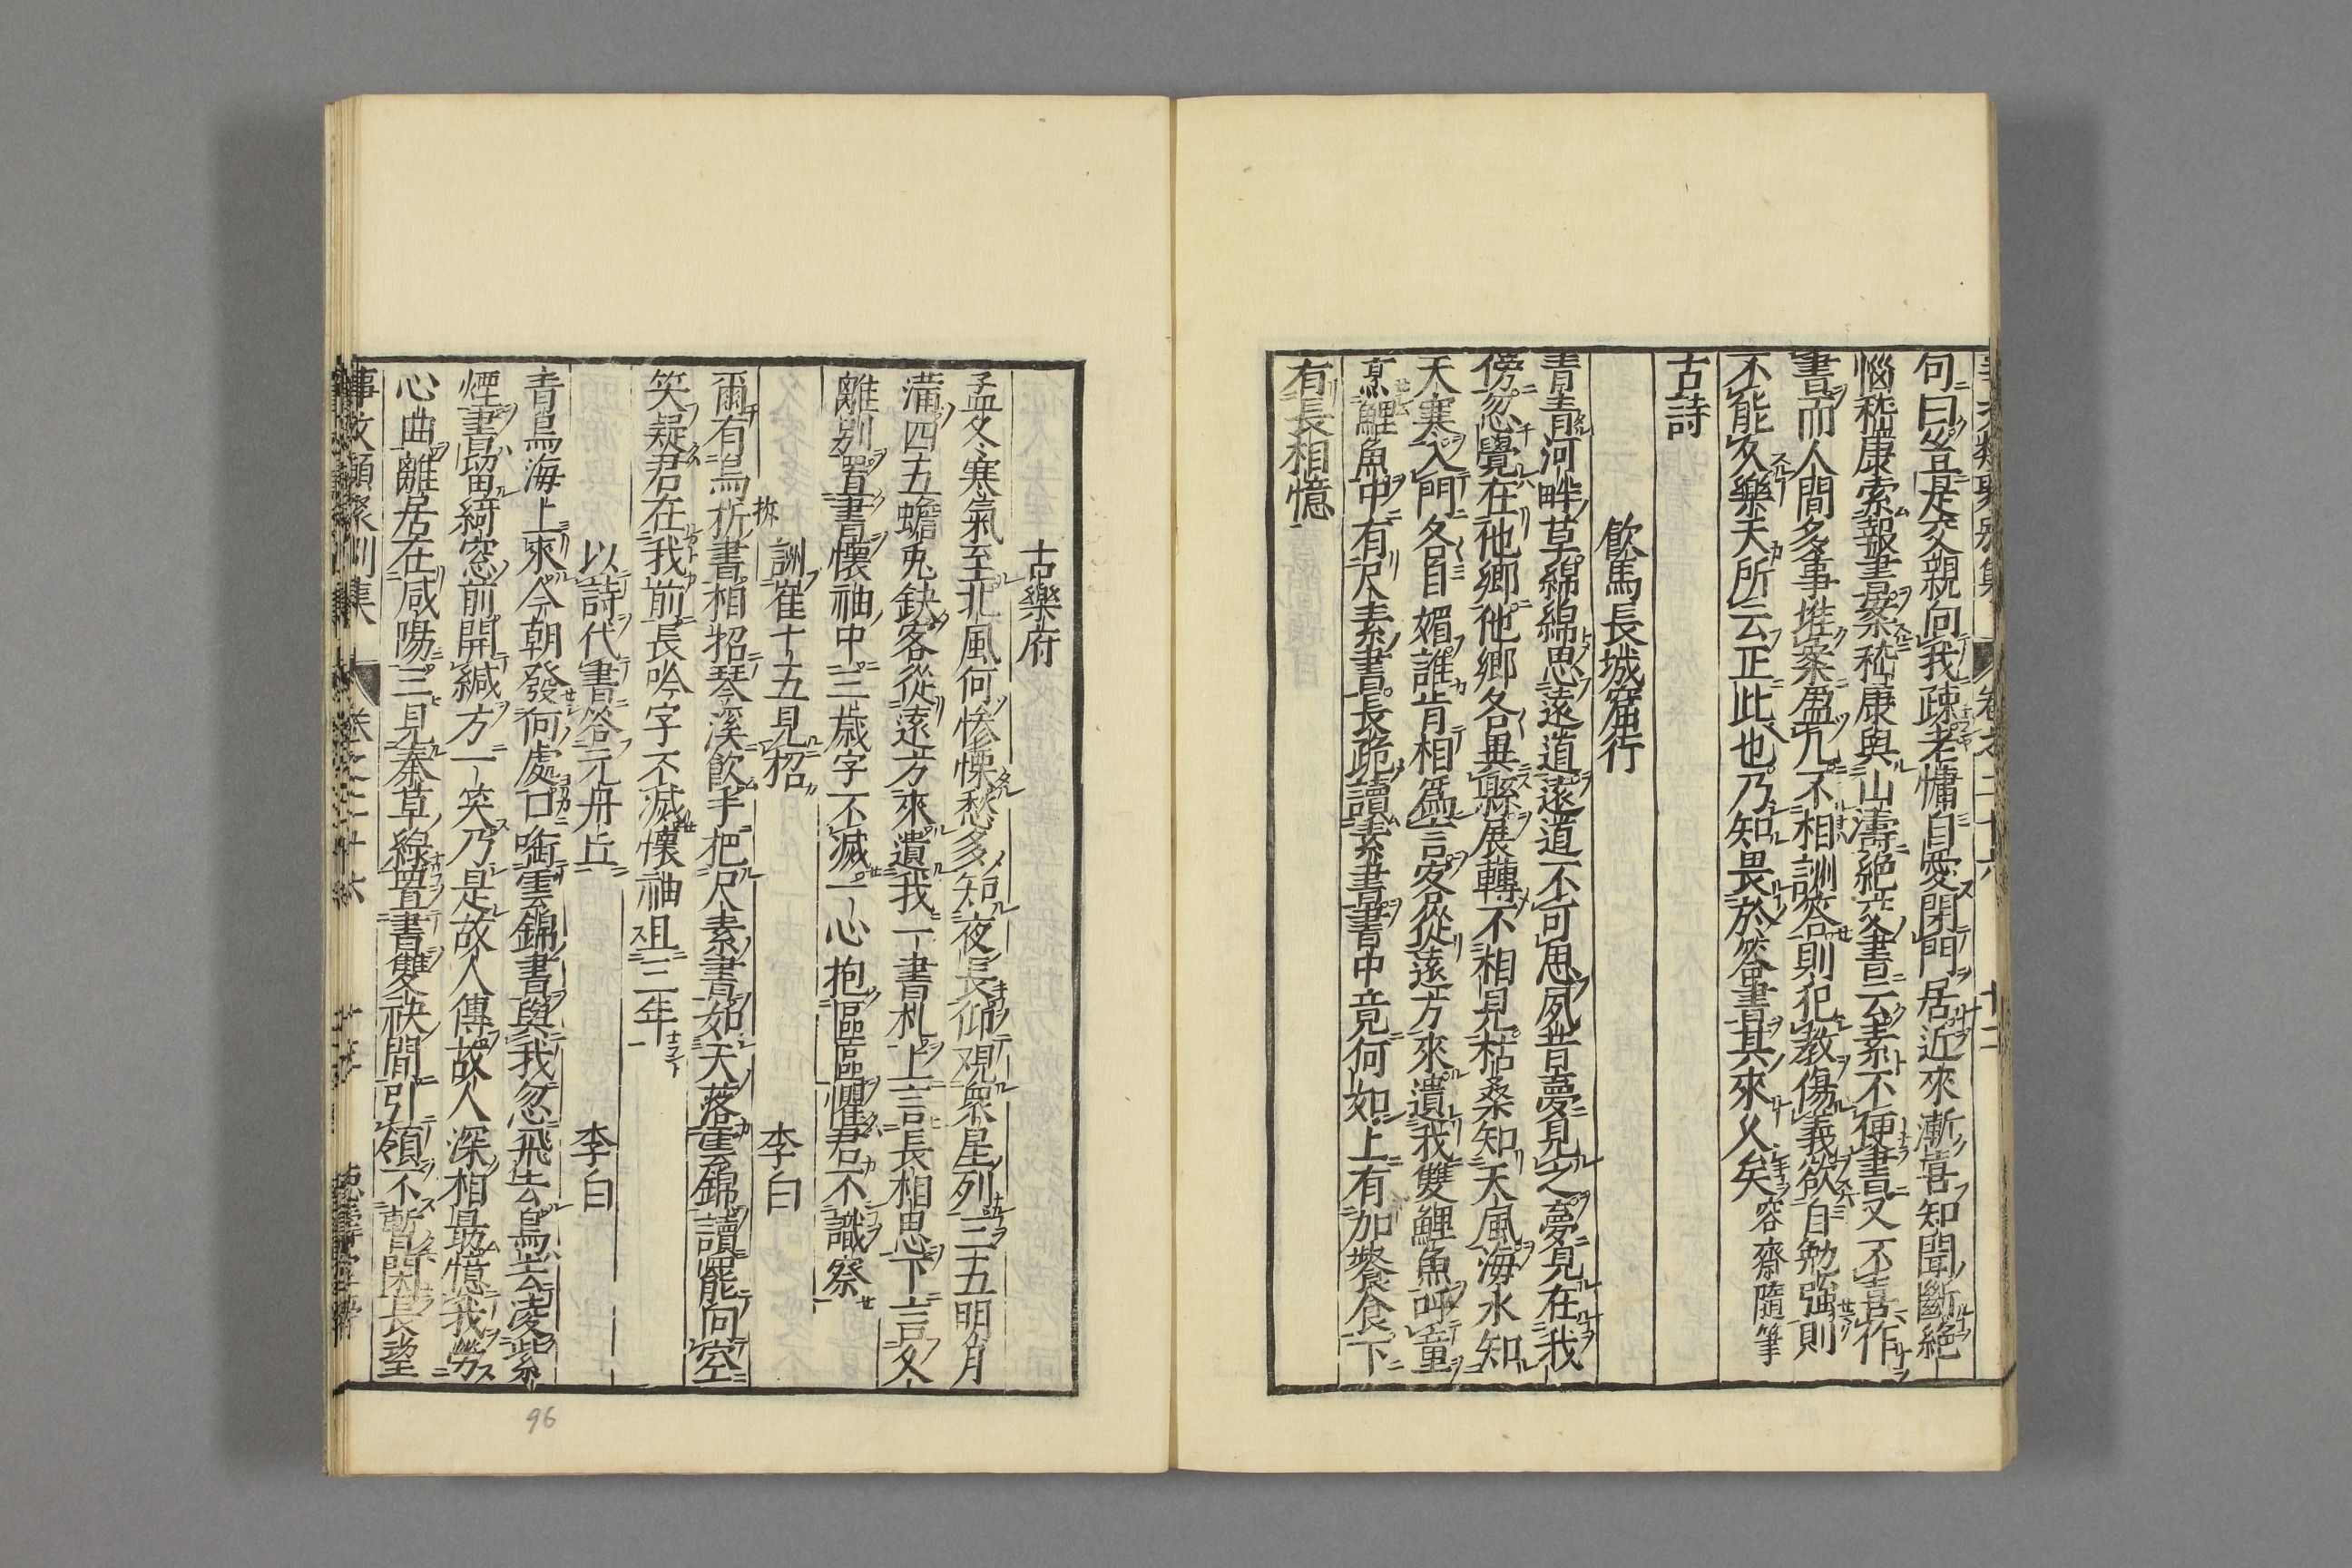 句曰豈是交親向我疎老慵自愛閉門居近來漸喜知聞斷絶
惱嵆康索報書案嵆康與山濤絶交書云素不便書又不喜作
書而人間多事堆案盈几不相詶答則犯教傷義欲自勉強則
不能久樂天所云正此也乃知畏於答書其來久矣容齋隨筆
古詩
飲馬長城窟行
青青河畔草綿綿思遠道遠道不可思夙昔夢見之夢見在我
傍忽覺在他鄉他鄉各異縣展轉不相見枯桑知天風海水知
天寒入門各自媚誰肯相爲言客從遠方來遺我雙鯉魚呼童
烹鯉魚中有尺素書長跪讀素書書中竟何如上有加餐食下
有長相憶
古樂府
孟冬寒氣至北風何慘慄愁多知夜長仰觀衆星列三五明月
滿四五蟾兎缺客從遠方來遺我一書札上言長相思下言久
離别置書懷袖中三歳字不滅一心抱區區懼君不識察
詶崔十五見招 李白
爾有鳥拆書相招琴溪飲手把尺素書如天落雲錦讀罷向空
笑疑君在我前長吟字不滅懷袖且三年
以詩代書答元丹丘 李白
青鳥海上來今朝發何處口啣雲錦書與我忽飛去鳥去凌紫
煙書留綺窓前開緘方一笑乃是故人傳故人深相勗憶我勞
心曲離居在咸陽三見秦草緑置書雙袂間引領不暫閑長望
事文類聚别集 卷之二十六